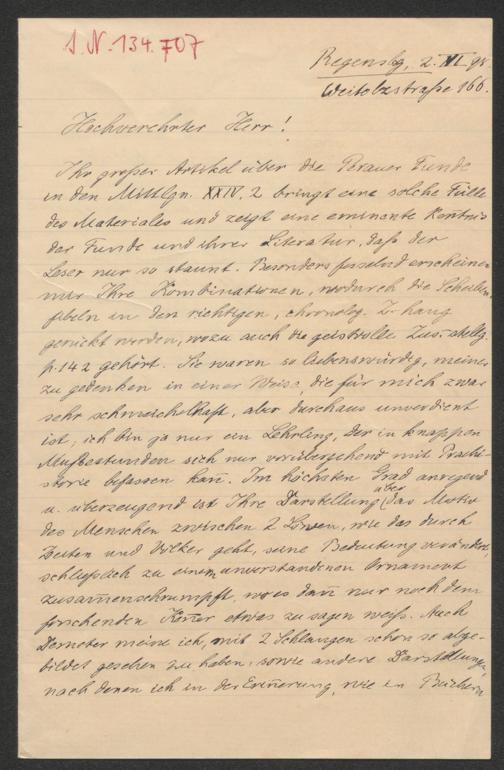 S. N. 134.707
Regensbg, 2. XI. 98.
Weitolzstraße 166.
Hochverehrter Herr!
Ihr großer Artikel über die Perauer Funde
in den Mittlgn. XXIV, 2 bringt eine solche Fülle
des Materiales und zeigt eine eminente Kentnis
der Funde und ihrer Literatur, daß der
Leser nur so staunt. Besonders fesselnd erscheinen
mir Ihre Kombinationen, wodurch die Scheiben-
fibeln in den richtigen, chronolog. Z. hang
gerückt werden, wozu auch die geistvolle Zus. stellg.
p. 142 gehört. Sie waren so liebenswürdig, meiner
zu gedenken in einer Weise, die für mich zwar
sehr schmeichelhaft, aber durchaus unverdient
ist; ich bin ja nur ein Lehrling, der in knappen
Mußestunden sich nur vorübergehend mit Prähi-
storie befassen kan̄. Im höchsten Grad anregend
u. überzeugend ist Ihre Darstellung über das Motiv
des Menschen zwischen 2 Löwen, wie das durch
Zeiten und Völker geht, seine Bedeutung verändert,
schließlich zu einem unverstandenen Ornament
zusam̄enschrumpft, wo es dan̄ nur noch dem
forschenden Ken̄er etwas zu sagen weiß. Auch
Demeter meine ich, mit 2 Schlangen schon so abge-
bildet gesehen zu haben, sowie andere Darstellungen,
nach denen ich in der Erin̄erung, wie in Büchern